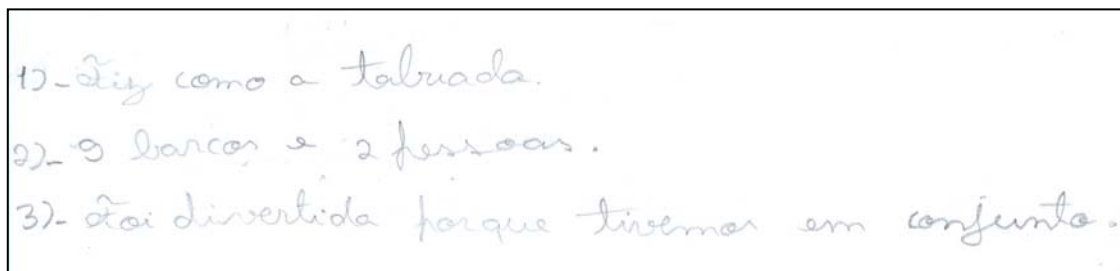 1)- Fiz como a tabuada.
2)- 9 barcos e 2 pessoas.
3)- Foi divertida porque tivemos em conjunto.